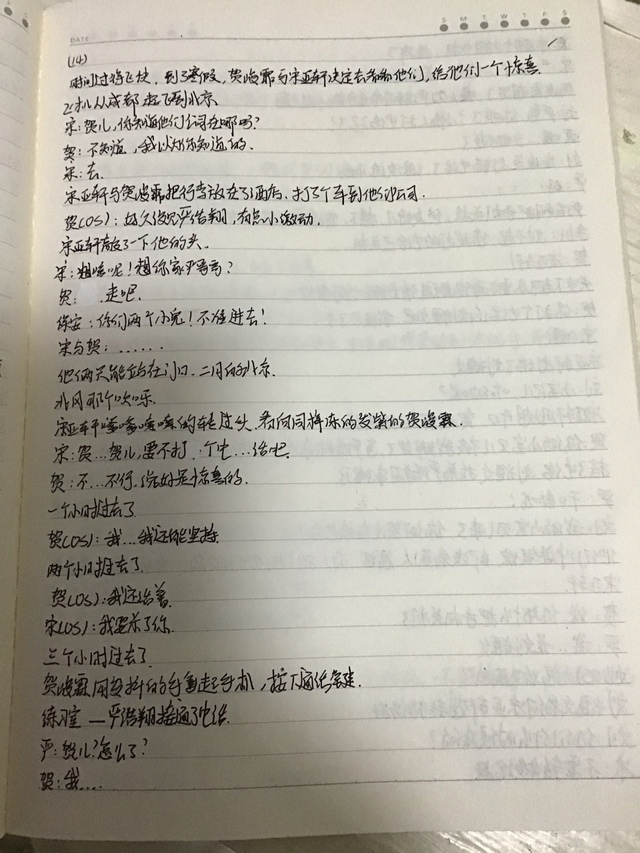 DATE
S M T W T F S
(14)
时间过得飞快，到了寒假，贺峻霖与宋亚轩决定去看看他们，给他们一个惊喜
飞机从成都起飞到北京
宋：贺儿，你知道他们公司在哪吗？
贺：不知道，我以为你知道的.
宋：去.
宋亚轩与贺峻霖把行李放在了酒店，打了个车到他们公司.
贺(OS)：好久没见严浩翔，有点小激动.
宋亚轩敲了一下他的头.
宋：想啥呢！想你家严哥哥？
贺： 走吧.
保安：你们两个小鬼！不准进去！
宋与贺：......
他俩只能站在门口.二月的北京.
北风那个吹呀.
宋亚轩哆哆嗦嗦的转过头，看向同样冻的发紫的贺峻霖.
宋：贺...贺儿，要不打 个电...话吧.
贺：不...不行，说好是惊喜的.
一个小时过去了
贺(OS)：我...我还能坚持.
两个小时过去了.
贺(OS)：我还活着.
宋(OS)：我要杀了你.
三个小时过去了.
贺峻霖用发抖的手拿起手机，按下通话键.
练习室 — 严浩翔接通了电话.
严：贺儿？怎么了？
贺：我....